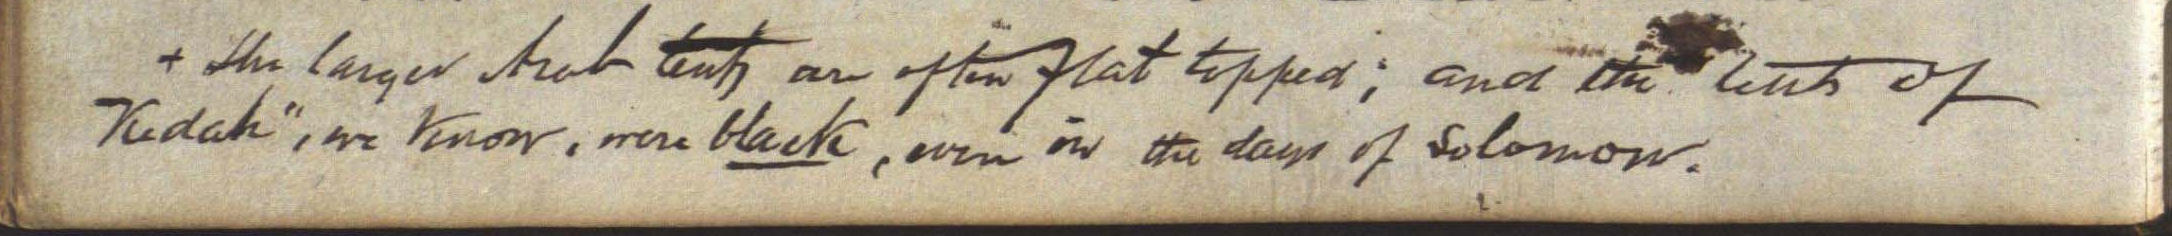 + The larger Arab tents are often flat topped; and the tents of
Kedah", we know, were black, even in the days of Solomon.